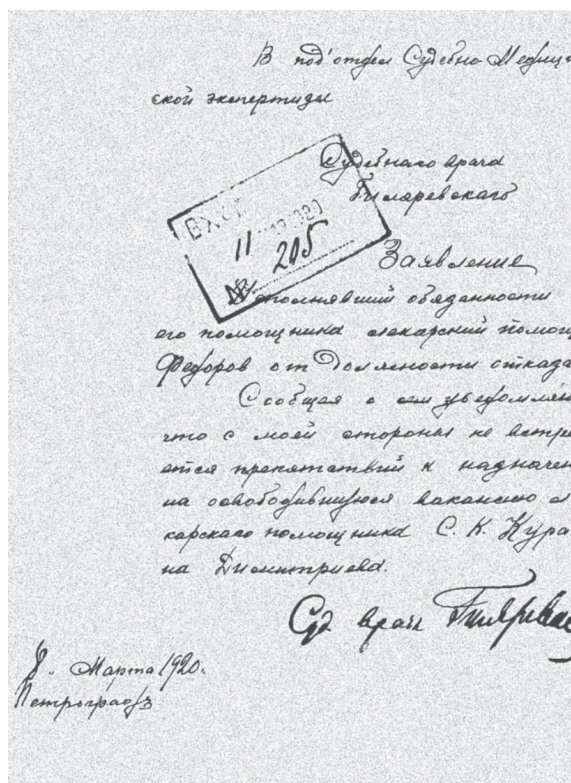 В под'отдел Судебно Медицин
ской экспертизы
Судебнаго врача
Гиляревскаго
ВХОД
11 1920
№ 205
Заявление
Исполнявший обязанности
его помощника лекарский помощ
Федоров от должности отказа
Сообщая о сем уведомляю
что с моей стороны не встре
ется препятствий к назначен
на освободившуюся вакансию л
карскаго помощника С. К. Кура
на Димитриева.
Суд врач Гиляревс
8 „ Марта 1920.
Петроградъ